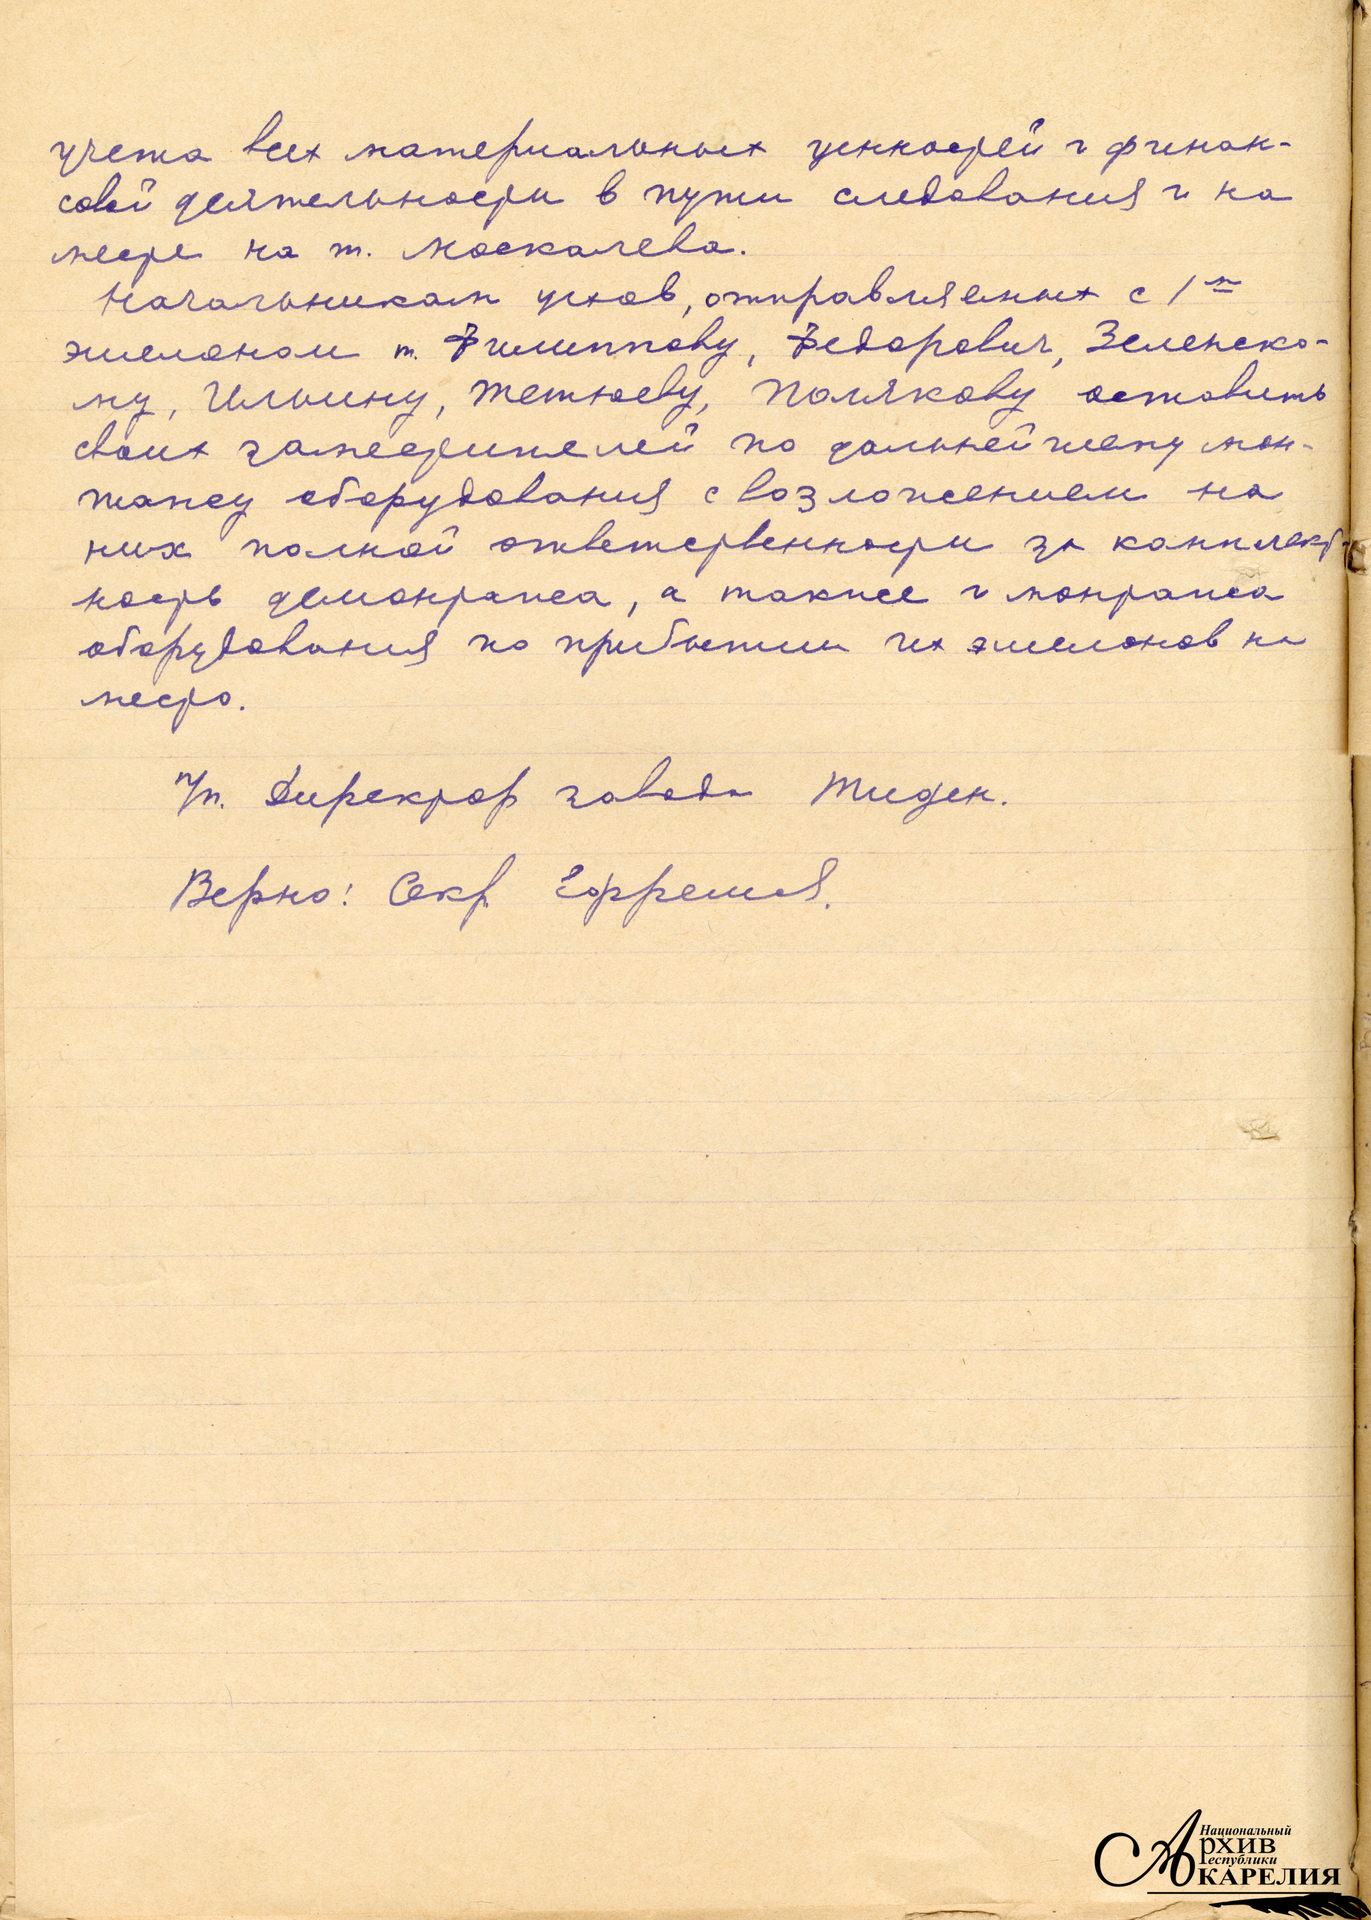 учета всех материальных ценностей и финан-
совой деятельности в пути следования и на
месте на т. Москалева.
Начальникам цехов, отправляемых с 1м
эшелоном т. Филиппову, Федорович, Зеленско-
му, Ильину, Тетюеву, Полякову оставить
своих заместителей по дальнейшему мон-
тажу оборудования с возложением на
них полной ответственности за комплект-
ность демонтажа, а также и монтажа
оборудования по прибытии их эшелонов на
место.
п/п. Директор завода Тиден.
Верно: Секр.
Национальный
Архив
Республики
Карелия